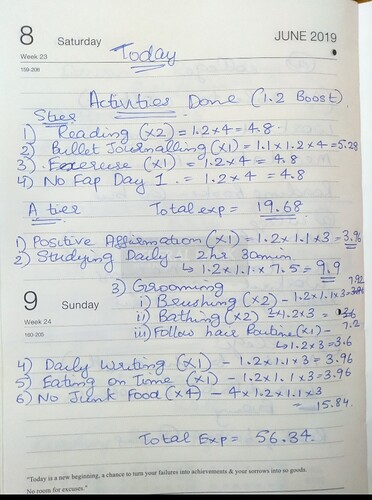 8 Saturday JUNE 2019
Week 23
159-206
Today
Activities Done (1.2 Boost)
S tier
1) Reading (x2) = 1.2 x 4 = 4.8
2) Bullet Journalling (x1) = 1.1 x 1.2 x 4 = 5.28
3) Exercise (x1) = 1.2 x 4 = 4.8
4) No Fap Day 1. = 1.2 x 4 = 4.8
A tier Total exp = 19.68
1) Positive Affirmation (x1) = 1.2 x 1.1 x 3 = 3.96
2) Studying Daily - 2hr 30min
↳ 1.2 x 1.1 x 7.5 = 9.9
3) Grooming 7.92
9 Sunday
i) Brushing (x2) - 1.2 x 1.1 x 3 =
ii) Bathing (x2) 2 x 1.2 x 3 =
7.2
Week 24
160-205
iii) Follow hair Routine (x1) -
↳ 1.2 x 3 = 3.6
4) Daily Writing (x1) - 1.2 x 1.1 x 3 = 3.96
5) Eating on Time (x1) - 1.2 x 1.1 x 3 = 3.96
6) No Junk Food (x4) - 4 x 1.2 x 1.1 x 3
= 15.84
Total Exp = 56.34
"Today is a new beginning, a chance to turn your failures into achievements & your sorrows into so goods.
No room for excuses."